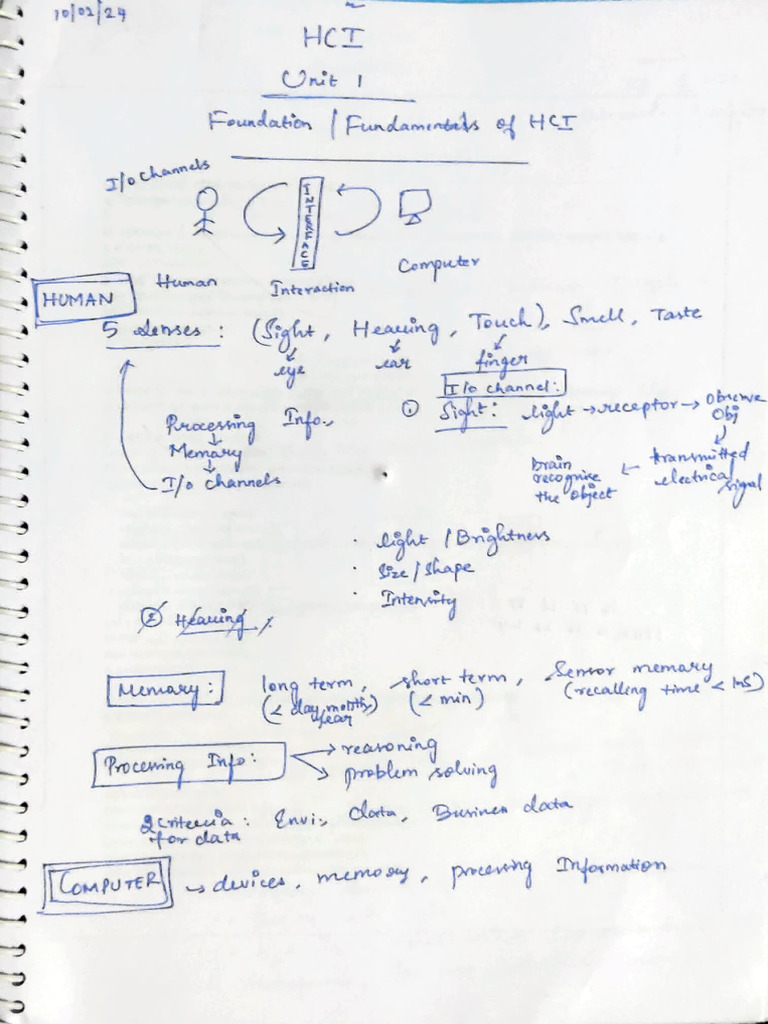 10/02/24
HCI
Unit 1
Foundation / Fundamentals of HCI
I/o Channels
INTERFACE
Human
Interaction
Computer
HUMAN
5 senses : (Sight, Hearing, Touch), Smell, Taste
eye ear finger
I/o channel:
① Sight: light → receptor → Observe Obj
transmitted electrical signal
← Brain recognise the object
Processing Info.,
↓
Memory
↓
I/o channels
· light / Brightness
· Size / shape
· Intensity
② Hearing
Memory: long term, short term, Sensor memory
(< day, month, year) (< min) (recalling time < 1ms)
Processing Info: → reasoning
→ problem solving
2 criteria : Envi., data, Business data
for data
COMPUTER → devices, memory, processing Information